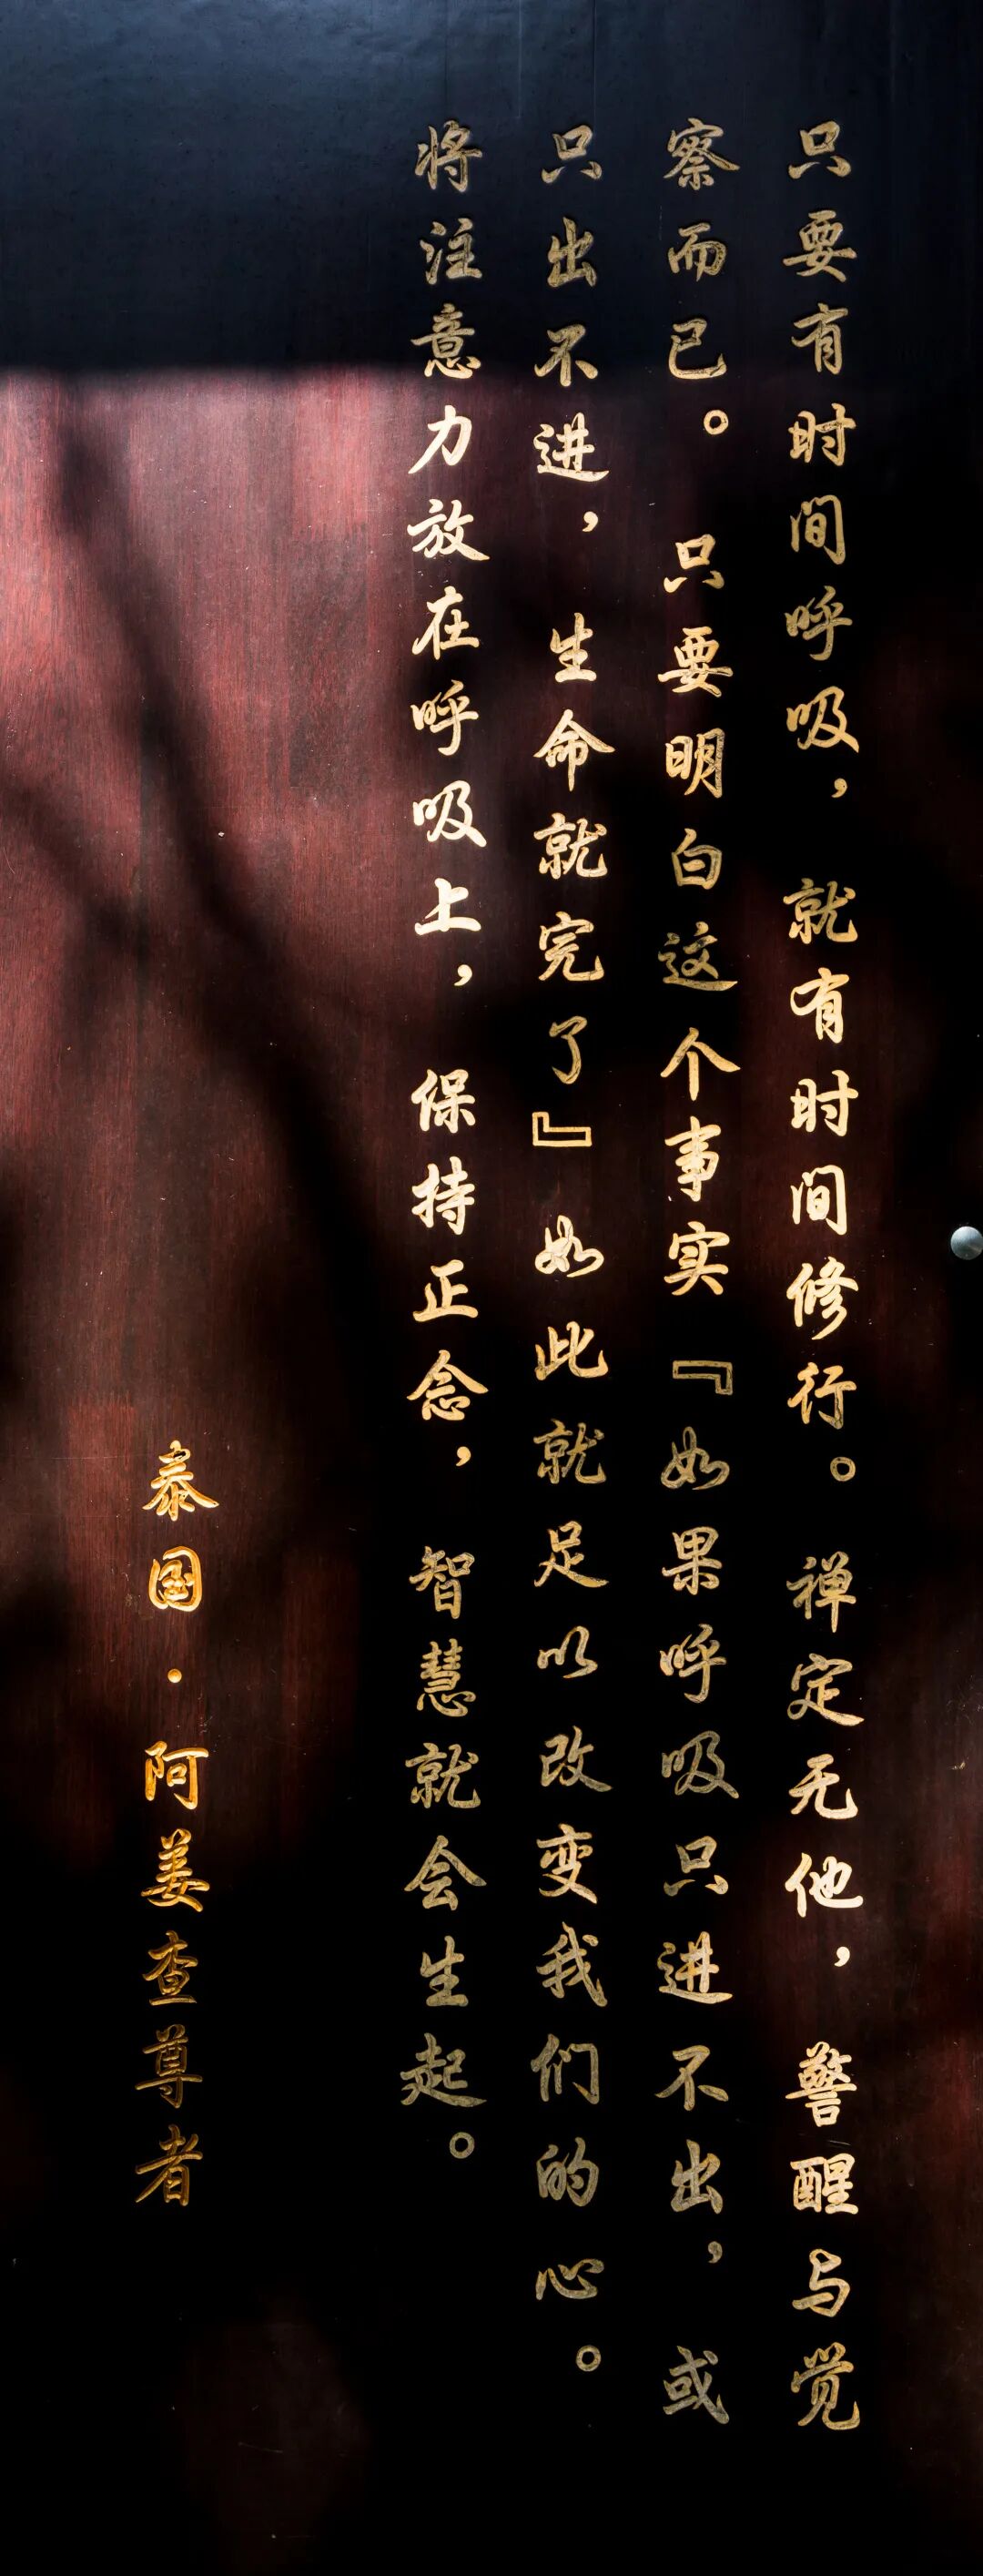 只要有时间呼吸，就有时间修行。禅定无他，警醒与觉
察而已。只要明白这个事实『如果呼吸只进不出，或
只出不进，生命就完了』如此就足以改变我们的心。
将注意力放在呼吸上，保持正念，智慧就会生起。
泰国·阿姜查尊者